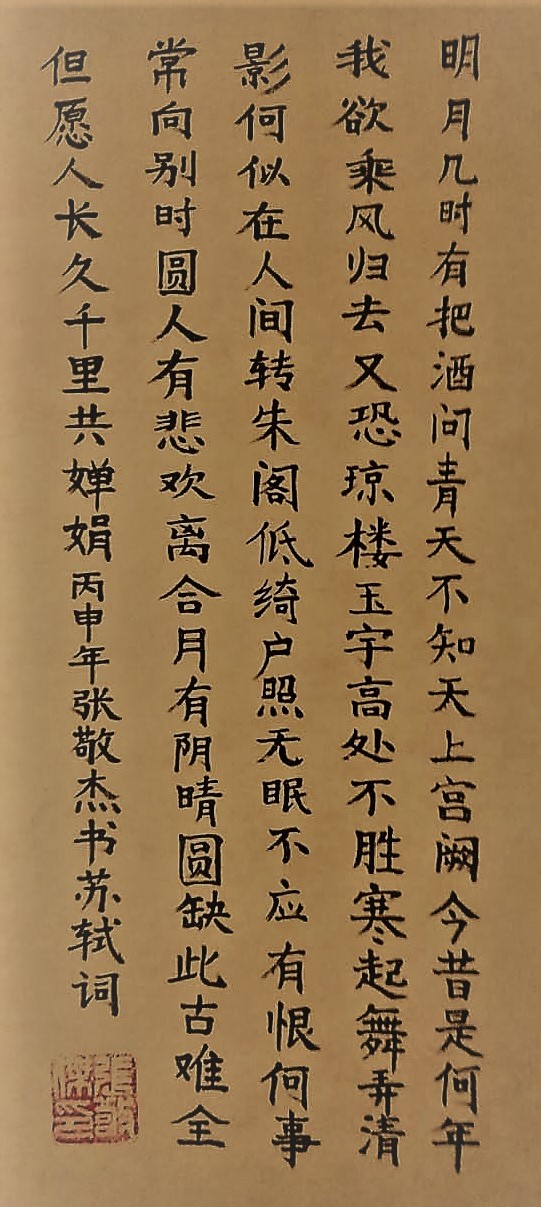 明月几时有把酒问青天不知天上宫阙今昔是何年
我欲乘风归去又恐琼楼玉宇高处不胜寒起舞弄清
影何似在人间转朱阁低绮户照无眠不应有恨何事
常向别时圆人有悲欢离合月有阴晴圆缺此古难全
但愿人长久千里共婵娟丙申年张敬杰书苏轼词
張敬傑印